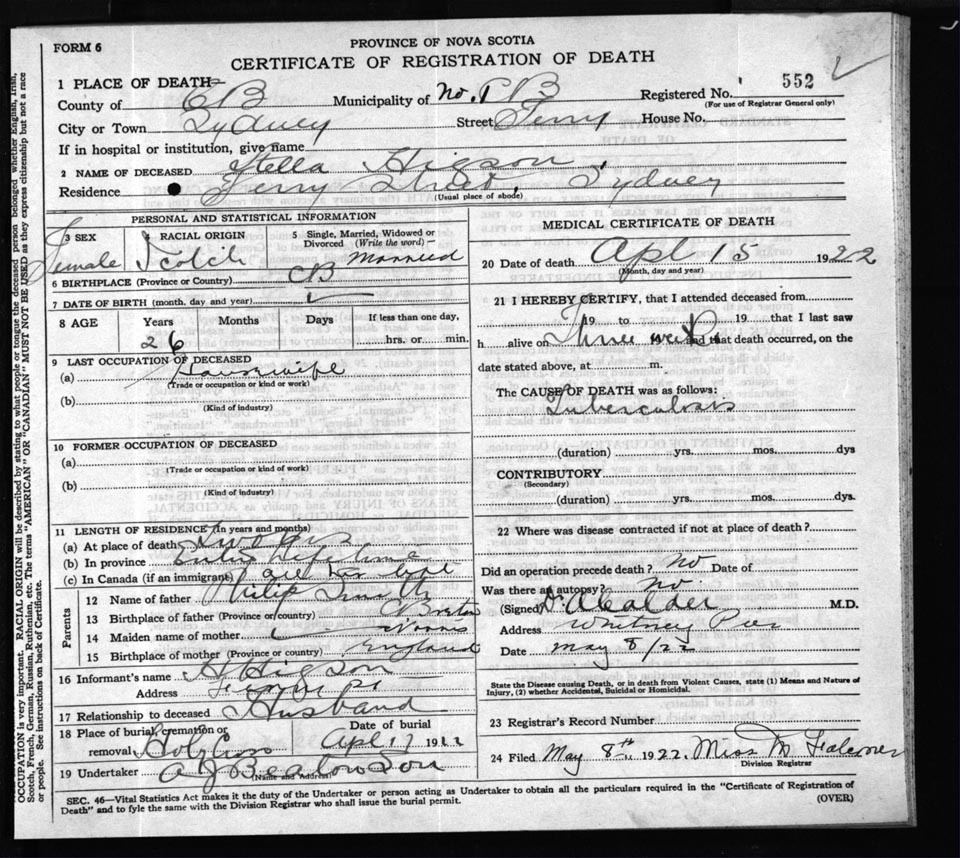 FORM 6
PROVINCE OF NOVA SCOTIA
CERTIFICATE OF REGISTRATION OF DEATH
1 PLACE OF DEATH—
County of CB Municipality of No. 1 CB Registered No. 552
(For use of Registrar General only)
City or Town Sydney Street Ferry House No.
If in hospital or institution, give name
2 NAME OF DECEASED Stella Higson
Residence Ferry Street, Sydney
(Usual place of abode)
PERSONAL AND STATISTICAL INFORMATION
3 SEX RACIAL ORIGIN 5 Single, Married, Widowed or Divorced (Write the word)—
Female Scotch Married
6 BIRTHPLACE (Province or Country) CB
7 DATE OF BIRTH (month, day and year)
8 AGE Years Months Days If less than one day,
26 hrs. or min.
9 LAST OCCUPATION OF DECEASED
(a) Housewife
(Trade or occupation or kind or work)
(b)
(Kind of industry)
10 FORMER OCCUPATION OF DECEASED
(a)
(Trade or occupation or kind or work)
(b)
(Kind of industry)
11 LENGTH OF RESIDENCE (In years and months)
(a) At place of death Two yrs
(b) In province Entire life time
(c) In Canada (if an immigrant) all her life
Parents
12 Name of father Philip Smith
13 Birthplace of father (Province or country) C Breton
14 Maiden name of mother Norris
15 Birthplace of mother (Province or country) England
16 Informant's name A Higson
Address Ferry St
17 Relationship to deceased Husband
18 Place of burial, cremation or removal Date of burial
Apl 17 1922
19 Undertaker A J Beaton & Son
(Name and Address)
MEDICAL CERTIFICATE OF DEATH
20 Date of death Apl 15 1922
(Month, day and year)
21 I HEREBY CERTIFY, that I attended deceased from
19 to 19 that I last saw
h alive on Three weeks and that death occurred, on the
date stated above, at m.
The CAUSE OF DEATH was as follows:
Tuberculosis
(duration) yrs. mos. dys
CONTRIBUTORY
(Secondary)
(duration) yrs. mos. dys.
22 Where was disease contracted if not at place of death?
Did an operation precede death? No Date of
Was there an autopsy? No
(Signed) M.D.
Address Whitney Pier
Date May 8/22
State the Disease causing Death, or in death from Violent Causes, state (1) Means and Nature of
Injury, (2) whether Accidental, Suicidal or Homicidal.
23 Registrar's Record Number
24 Filed May 8th, 1922. Miss M Falconer
Division Registrar
SEC. 46—Vital Statistics Act makes it the duty of the Undertaker or person acting as Undertaker to obtain all the particulars required in the "Certificate of Registration of
Death" and to fyle the same with the Division Registrar who shall issue the burial permit.
(OVER)
OCCUPATION is very important. RACIAL ORIGIN will be described by stating to what people or tongue the deceased person belonged whether English, Irish,
Scotch, French, German, Russian, Ruthenian, etc. The terms "AMERICAN" OR "CANADIAN" MUST NOT BE USED as they express citizenship but not a race
or people. See instructions on back of Certificate.